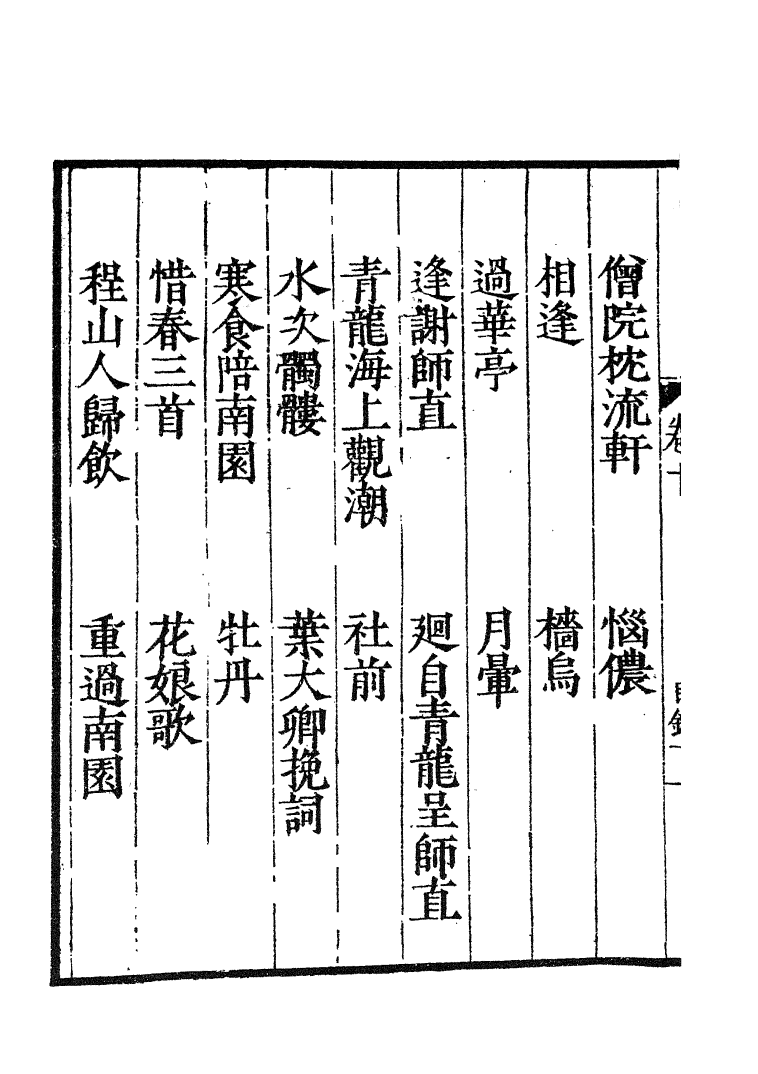 僧院枕流軒　惱儂
相逢　檣烏
過華亭　月暈
逢謝師直　廻自青龍呈師直
青龍海上觀潮　社前
水次髑髏　葉大卿挽詞
寒食陪南園　牡丹
惜春三首　花娘歌
程山人歸飲　重過南園